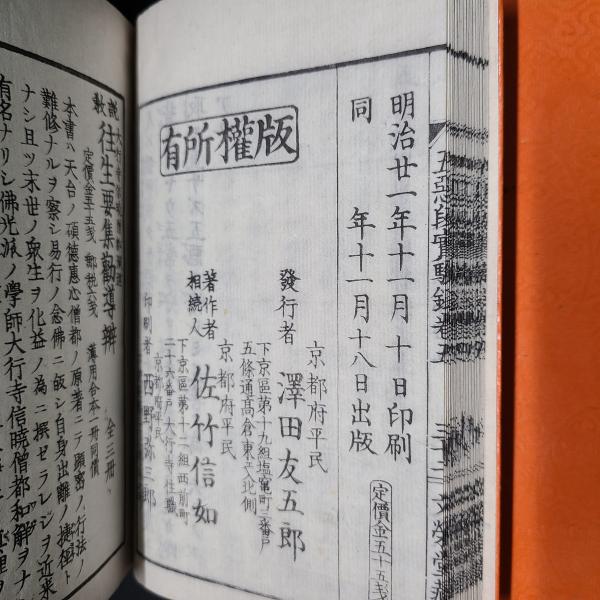 五惡段實驗録卷五
三十二
文榮堂
明治廿一年十一月十日印刷
同 年十一月十八日出版
定價金五十五戔
版權所有
京都府平民
發行者 澤田友五郎
下京區第十九組塩竈町二番戸
五條通髙倉東ヱ入北側
京都府平民
著作者
相続人 佐竹信如
下京區第十二組西前町
二十六番戸大行寺住職
京都府平民
印刷者 西野弥三郎
説教 往生要集勸導辨 全三冊
定價金三十五戔 郵税六戔 薄用合本一冊同價
本書ハ天台ノ碩德惠心僧都ノ原著ニテ顕密ノ行法ノ
難修ナルヲ察シ易行ノ念佛ニ皈シ自身出離ノ捷徑ト
ナシ且ツ末世ノ衆生ヲ化益ノ為ニ撰セラレシヲ近来
有名ナリシ佛光派ノ學師大行寺信暁僧都和解ヲナ